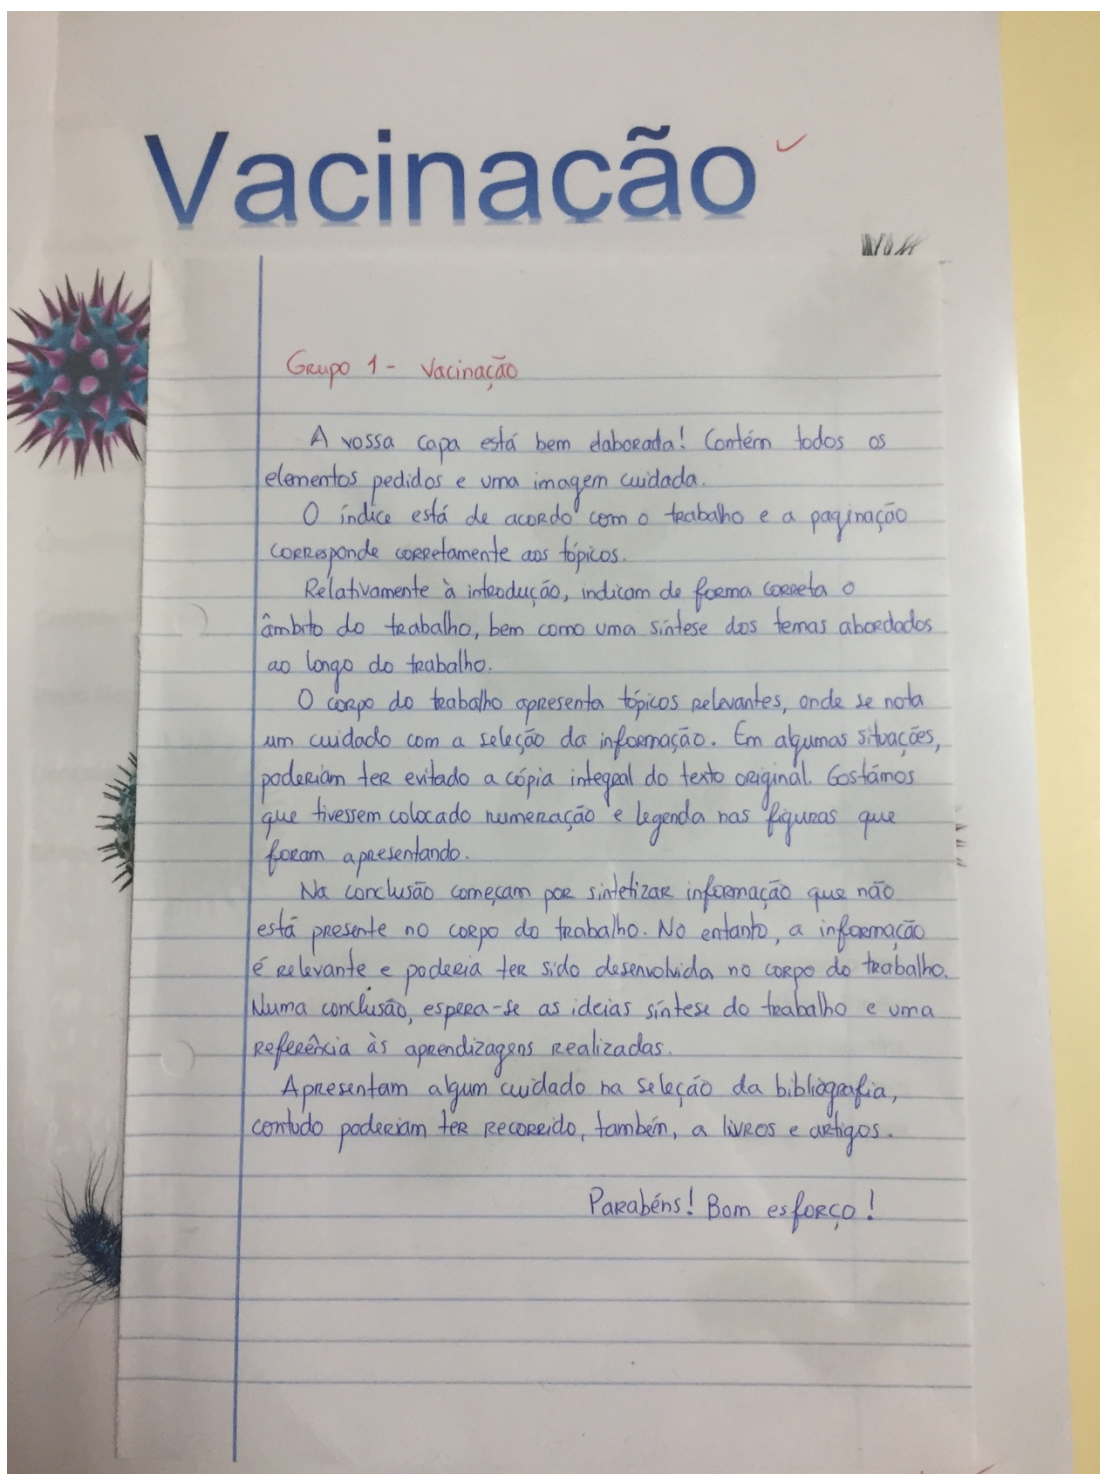 Vacinação
Grupo 1 - Vacinação
A vossa capa está bem elaborada! Contém todos os
elementos pedidos e uma imagem cuidada.
O índice está de acordo com o trabalho e a paginação
corresponde corretamente aos tópicos.
Relativamente à introdução, indicam de forma correta o
âmbito do trabalho, bem como uma síntese dos temas abordados
ao longo do trabalho.
O corpo do trabalho apresenta tópicos relevantes, onde se nota
um cuidado com a seleção da informação. Em algumas situações,
poderiam ter evitado a cópia integral do texto original. Gostámos
que tivessem colocado numeração e legenda nas figuras que
foram apresentando.
Na conclusão começam por sintetizar informação que não
está presente no corpo do trabalho. No entanto, a informação
é relevante e poderia ter sido desenvolvida no corpo do trabalho.
Numa conclusão, espera-se as ideias síntese do trabalho e uma
referência às aprendizagens realizadas.
Apresentam algum cuidado na seleção da bibliografia,
contudo poderiam ter recorrido, também, a livros e artigos.
Parabéns! Bom esforço!